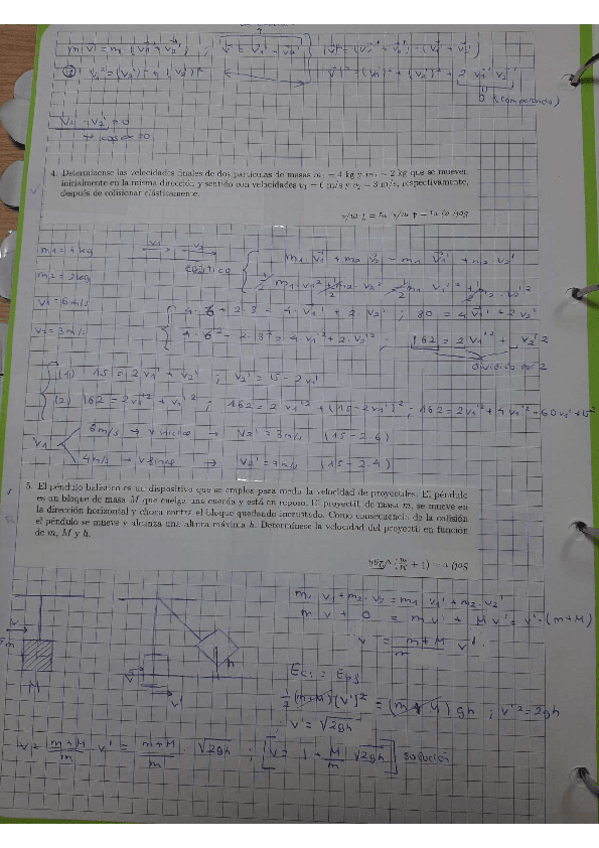 m |v| = m (v₁' + v₂') ; v = v₁' + v₂' (v)² = (v₁' + v₂') · (v₁' + v₂')
v² = (v₁')² + (v₂')² v² = (v₁')² + (v₂')² + 2 v₁' v₂'
0 (comparando)
v₁' · v₂' = 0
→ cos α = 0
4. Determínense las velocidades finales de dos partículas de masas m₁ = 4 kg y m₂ = 2 kg que se mueven
inicialmente en la misma dirección y sentido con velocidades v₁ = 6 m/s y v₂ = 3 m/s, respectivamente,
después de colisionar elásticamente.
m₁ = 4 kg v₁ v₂ m₁ · v₁ + m₂ v₂ = m₁ v₁' + m₂ v₂'
m₂ = 2 kg elástico ½ m₁ · v₁² + ½ m₂ · v₂² = ½ m₁ v₁'² + ½ m₂ · v₂'²
v₁ = 6 m/s 4 · 6 + 2 · 3 = 4 · v₁' + 2 · v₂' ; 30 = 4 v₁' + 2 v₂'
v₂ = 3 m/s 4 · 6² + 2 · 3² = 4 v₁'² + 2 · v₂'² 162 = 2 v₁'² + v₂'²
dividido por 2
(1) 15 = 2 v₁' + v₂' ; v₂' = 15 - 2v₁'
(2) 162 = 2v₁'² + v₂'² ; 162 = 2 v₁'² + (15 - 2v₁')² ; 162 = 2v₁'² + 4v₁'² - 60v₁' + 15²
6 m/s → v inicio → v₂' = 3 m/s (15 - 2·6)
v₁'
4 m/s → v final → v₂' = 7 m/s (15 - 2·4)
5. El péndulo balístico es un dispositivo que se emplea para medir la velocidad de proyectiles. El péndulo
es un bloque de masa M que cuelga una cuerda y está en reposo. El proyectil, de masa m, se mueve en
la dirección horizontal y choca contra el bloque quedando incrustado. Como consecuencia de la colisión
el péndulo se mueve y alcanza una altura máxima h. Determínese la velocidad del proyectil en función
de m, M y h.
m₁ v₁ + m₂ · v₂ = m₁ v₁' + m₂ · v₂'
v m v + 0 = m v' + M v' = v' · (m+M)
m h v = m+M/m v'
M v v' Eci = Epf
½ (m+M) (v')² = (m+M) gh ; v'² = 2gh
v' = √2gh
v = m+M/m v' = m+M/m · √2gh ; [v = 1 + M/m √2gh] solución